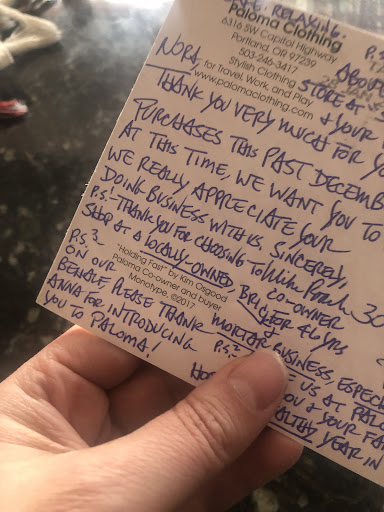 & RELAXING.
Paloma Clothing
6316 SW Capitol Highway
Portland, OR 97239
503-246-3417
Stylish Clothing
for Travel, Work and Play
www.palomaclothing.com
P.S.
ABOUT
STORE AT
& YOUR
NORA,
THANK YOU VERY MUCH FOR
PURCHASES THIS PAST DECEMB
AT THIS TIME, WE WANT YOU TO
WE REALLY APPRECIATE YOUR
DOING BUSINESS WITH US. SINCERELY,
P.S. 1 THANK YOU FOR CHOOSING TO
SHOP AT A LOCALLY-OWNED, BRICK
CO-OWNER
FOR 46 YRS
"Holding Fast" by Kim Osgood
Paloma Co-owner and buyer
Monotype, ©2017
MORTAR BUSINESS, ESPECI
P.S. 3
ON OUR
BEHALF, PLEASE THANK
ANNA FOR INTRODUCING
YOU TO PALOMA!
P.S. 2
US AT PALO
YOU & YOUR FA
HEALTHY YEAR IN